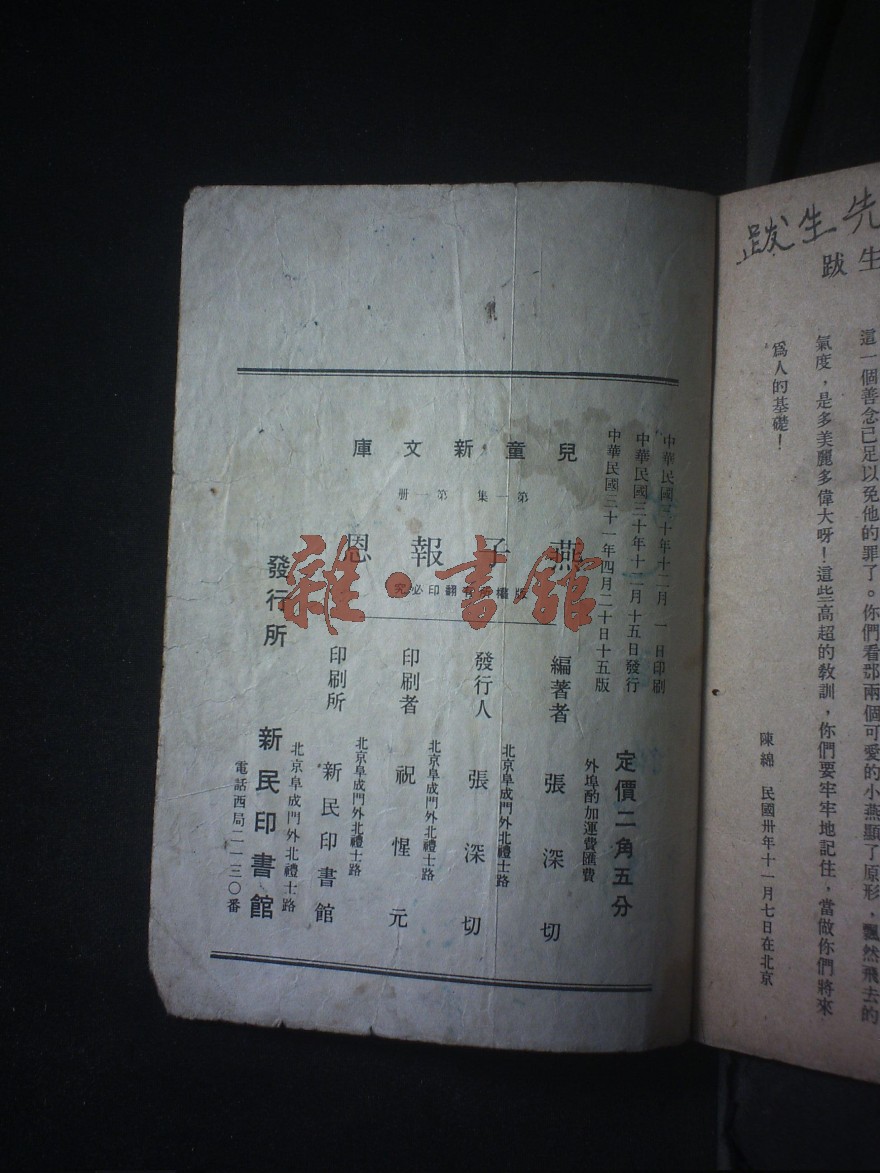 跋生先
跋生
這一個善念已足以免他的罪了。你們看那兩個可愛的小燕顯了原形，飄然飛去的
氣度，是多美麗多偉大呀！這些高超的教訓，你們要牢牢地記住，當做你們將來
為人的基礎！
陳綿 民國卅年十一月七日在北京
中華民國三十年十二月一日印刷
中華民國三十年十二月十五日發行
中華民國三十一年四月二十日十五版
兒童新文庫
第一集 第一册
燕子報恩
版權所有翻印必究
定價二角五分
外埠酌加運費匯費
編著者 張深切
北京阜成門外北禮士路
發行人 張深切
北京阜成門外北禮士路
印刷者 祝惺元
北京阜成門外北禮士路
印刷所 新民印書館
北京阜成門外北禮士路
發行所 新民印書館
電話西局二一三〇番
雜·書館